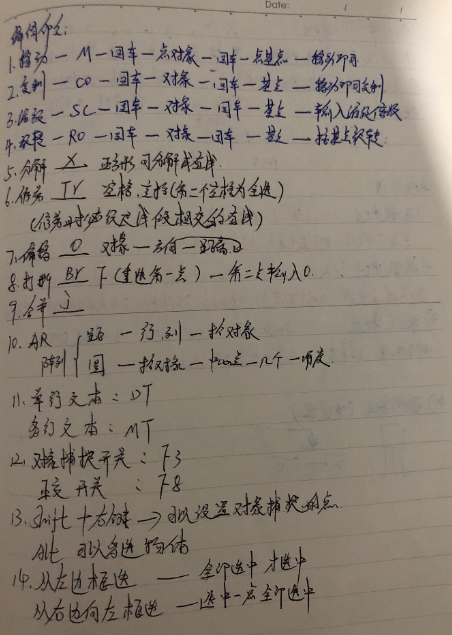 Date:
编辑命令:
1.移动 — M — 回车 — 点对象 — 回车 — 点基点 — 移动即可
2.复制 — CO — 回车 — 对象 — 回车 — 基点 — 移动即可复制
3.缩放 — SC — 回车 — 对象 — 回车 — 基点 — 输入缩放倍数
4.旋转 — RO — 回车 — 对象 — 回车 — 基点 — 按基点旋转
5.分解 X 矩形可分解成直线
6.修剪 Tr 空格.空格(第二个空格为全选)
7.偏移 O 对象 — 方向 — 距离
8.打断 Br F(重选第一点) — 第二点输入@
9.合并 J
10. AR 矩 — 行.列 — 拾对象
阵列 圆 — 拾对象 — 中心点 — 几个 — 角度
11.单行文本: DT
多行文本: MT
12.对象捕捉开关: F3
正交开关: F8
13. Shift + 右键 → 可以设置对象捕捉的点
Alt 可以多选物体
14.从左边框选 — 全部选中才选中
从右边向左框选 — 选中一点全部选中